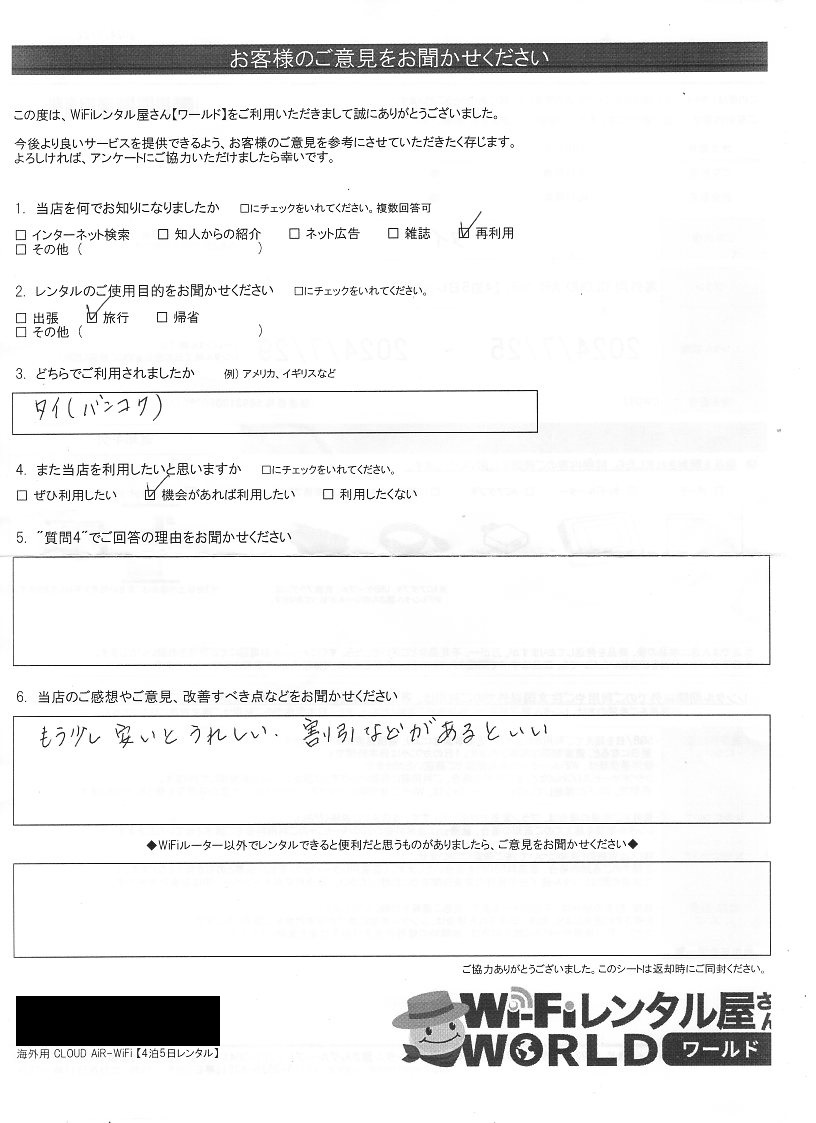 お客様のご意見をお聞かせください
この度は、WiFiレンタル屋さん【ワールド】をご利用いただきまして誠にありがとうございました。
今後より良いサービスを提供できるよう、お客様のご意見を参考にさせていただきたく存じます。
よろしければ、アンケートにご協力いただけましたら幸いです。
1. 当店を何でお知りになりましたか □にチェックをいれてください。複数回答可
□ インターネット検索 □ 知人からの紹介 □ ネット広告 □ 雑誌 ☑ 再利用
□ その他 ( )
2. レンタルのご使用目的をお聞かせください □にチェックをいれてください。
□ 出張 ☑ 旅行 □ 帰省
□ その他 ( )
3. どちらでご利用されましたか 例) アメリカ、イギリスなど
タイ(バンコク)
4. また当店を利用したいと思いますか □にチェックをいれてください。
□ ぜひ利用したい ☑ 機会があれば利用したい □ 利用したくない
5. "質問4"でご回答の理由をお聞かせください
6. 当店のご感想やご意見、改善すべき点などをお聞かせください
もう少し安いとうれしい. 割引などがあるといい
◆WiFiルーター以外でレンタルできると便利だと思うものがありましたら、ご意見をお聞かせください◆
ご協力ありがとうございました。このシートは返却時にご同封ください。
海外用 CLOUD AiR-WiFi 【4泊5日レンタル】
Wi-Fiレンタル屋さん
WORLD ワールド